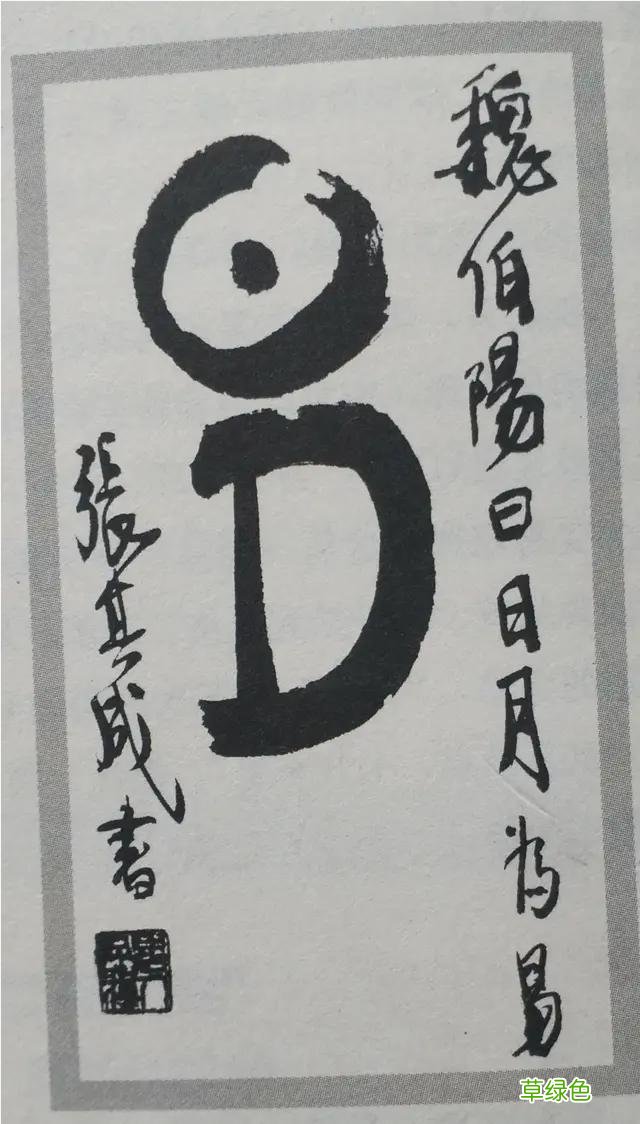 魏伯陽曰日月為易
張其成書
草绿色